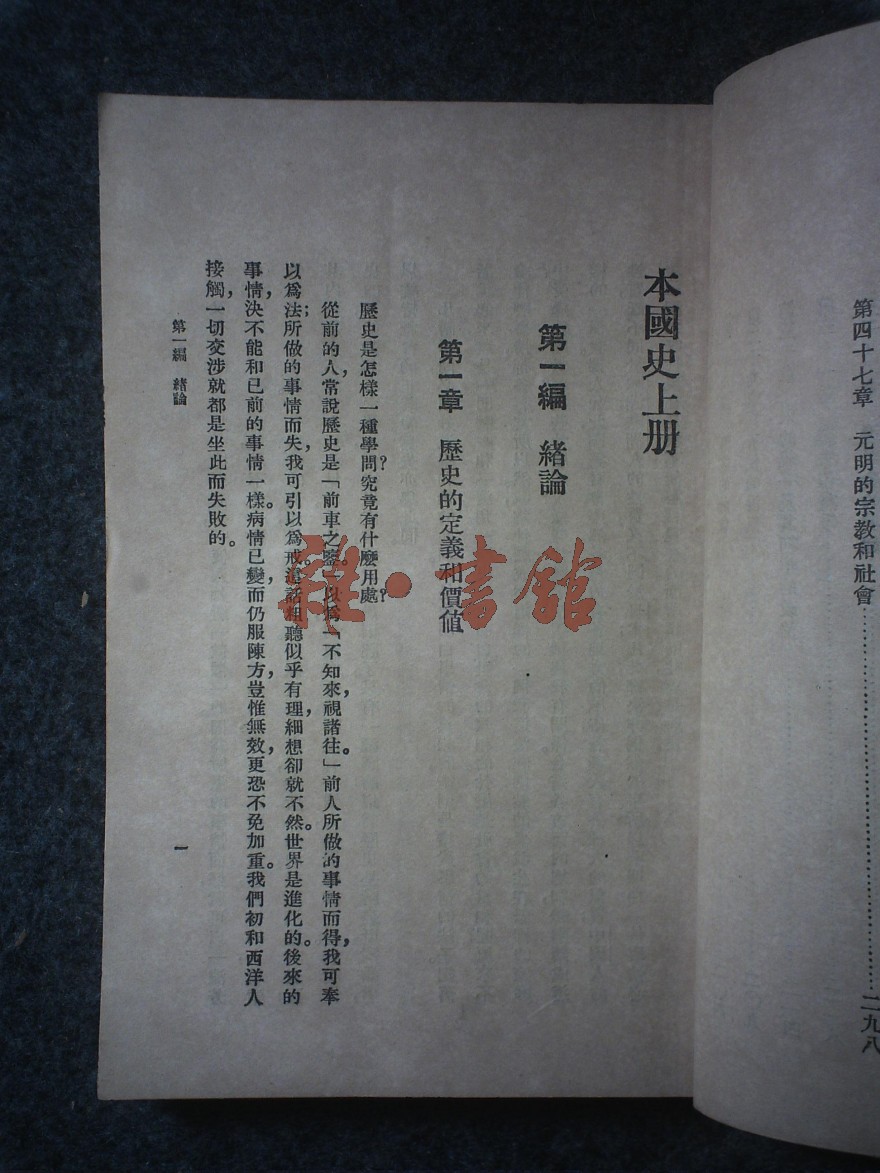 第四十七章　元明的宗教和社會……二九八
本國史上册
第一編　緒論
第一章　歷史的定義和價值
歷史是怎樣一種學問？究竟有什麼用處？
從前的人，常說歷史是「前車之鑒，」以爲「不知來，視諸往。」前人所做的事情而得，我可奉
以爲法；所做的事情而失，我可引以爲戒。這話粗聽似乎有理，細想卻就不然。世界是進化的。後來的
事情，決不能和已前的事情一樣。病情已變，而仍服陳方，豈惟無效，更恐不免加重。我們初和西洋人
接觸，一切交涉就都是坐此而失敗的。
第一編　緒論
一
雜·書館